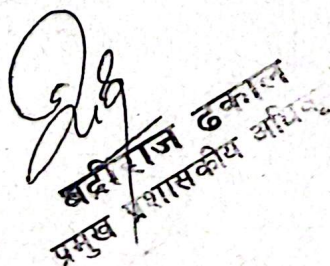 बद्रीराज ढकाल
प्रमुख प्रशासकीय